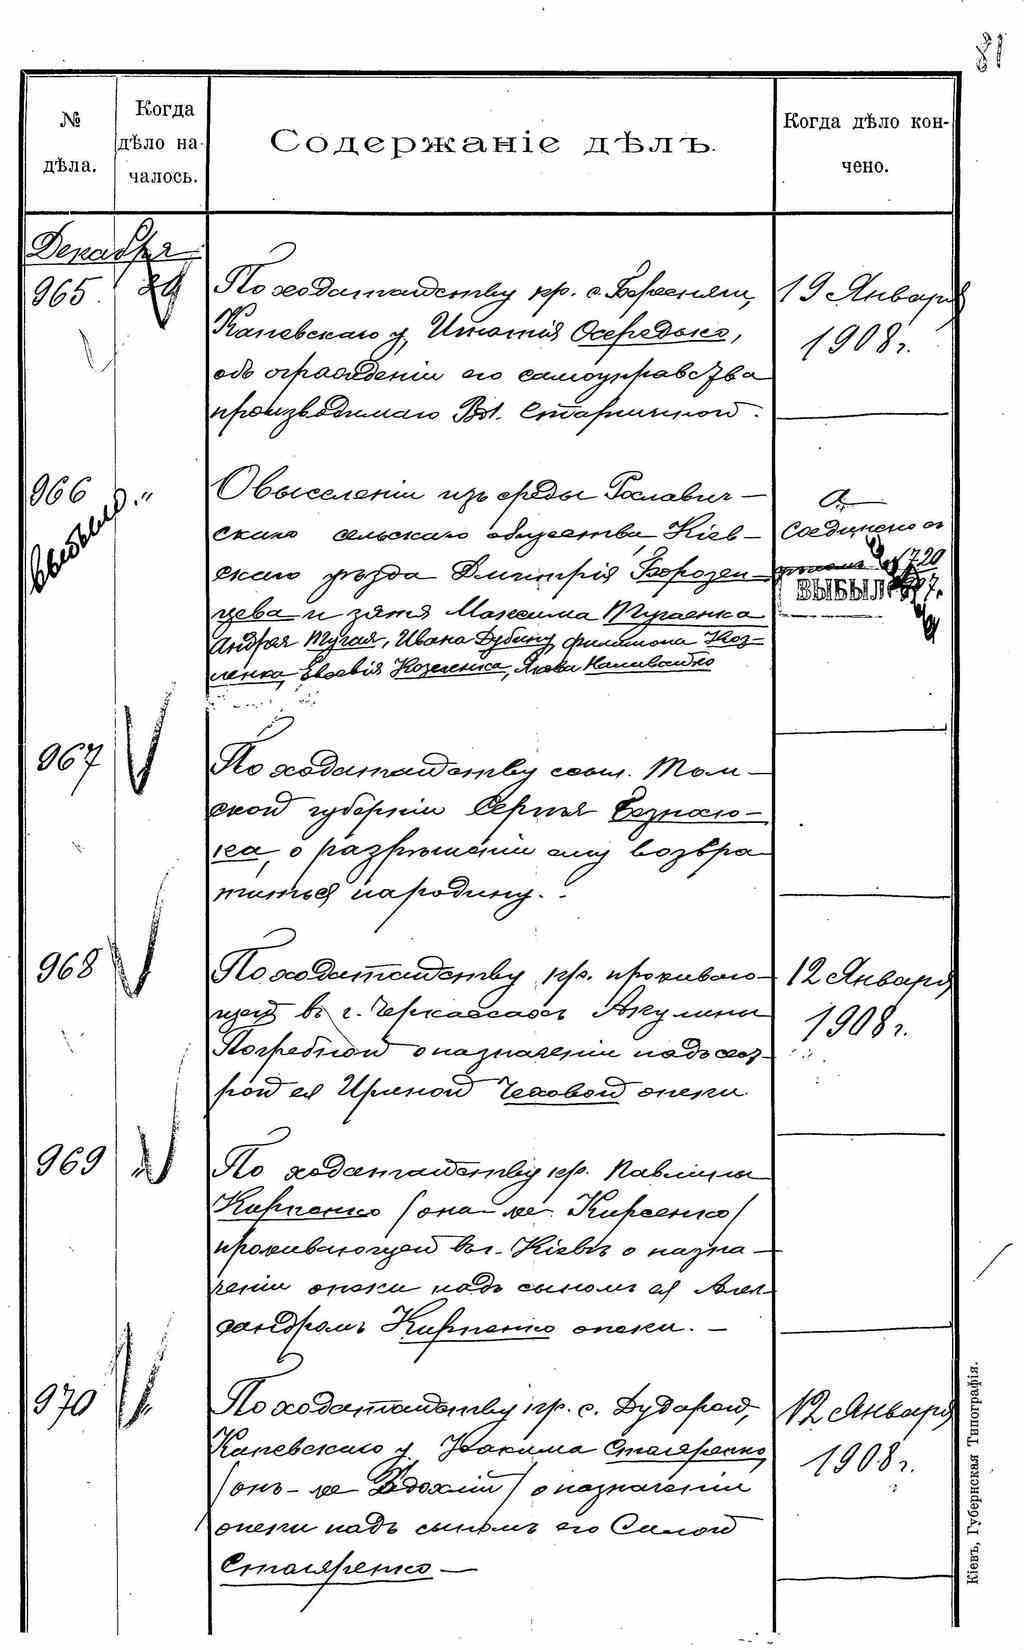 81
№ дѣла.
Когда дѣло началось.
Содержаніе дѣлъ.
Когда дѣло кончено.
Декабря
965. 29
По ходатайству кр. с.
Каневскаго у, Игнатія Осередько,
объ огражденіи его самоуправства
производимаго Вол. Старшиной.
19 Января
1908 г.
966 "
выбыло.
О выселеніи изъ среды Гославич-
скаго сельскаго общества, Кіев-
скаго уѣзда Дмитрія Борозен-
цева и зятя Максима Тугаенка
Андрея Тугая, Ивана Дубину, Филимона Коз-
ленка, Евсевія Козеленка, Якова Наливайко
Соединено съ
1720
907.
ВЫБЫЛО
967
По ходатайству ссыл. Том-
ской губерніи Сергѣя
ка, о разрѣшеніи ему возвра
титься на родину.
968
По ходатайству кр. проживаю-
щей въ г. Черкассахъ Акулины
Погребной о назначеніи надъ сест-
рой ея Ириной Чеховой опеки
12 Января
1908 г.
969 "
По ходатайству кр. Павлины
Кирпенко (она-же Кирсенко)
проживающей въ г. Кіевѣ о назна-
ченіи опеки надъ сыномъ ея Алек-
сандромъ Кирпенко опеки. —
970 "
По ходатайству кр. с. Дударей,
Каневскаго у Іоакима Стаяренко
(онъ-же Вдохлій) о назначеніи
опеки надъ сыномъ его Силой
Стаяренко —
12 Января
1908 г.
Кіевъ, Губернская Типографія.